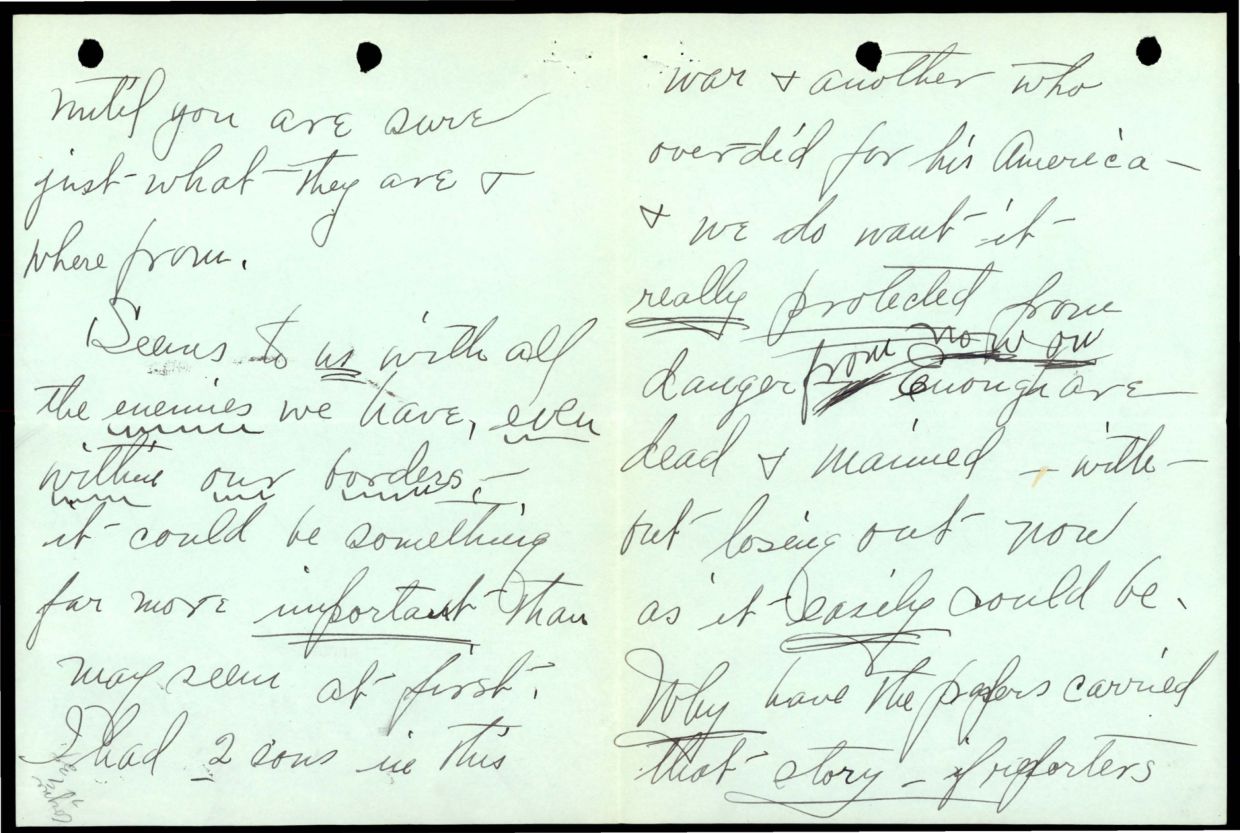 until you are sure
just what they are &
where from.
Seems to us with all
the enemies we have, even
within our borders -
it could be something
far more important than
may seem at first.
I had 2 sons in this
war & another who
overdid for his America -
& we do want it
really protected from
danger from now on
enough are
dead & maimed - with-
out losing out now
as it easily could be.
Why have the papers carried
that story - if reporters